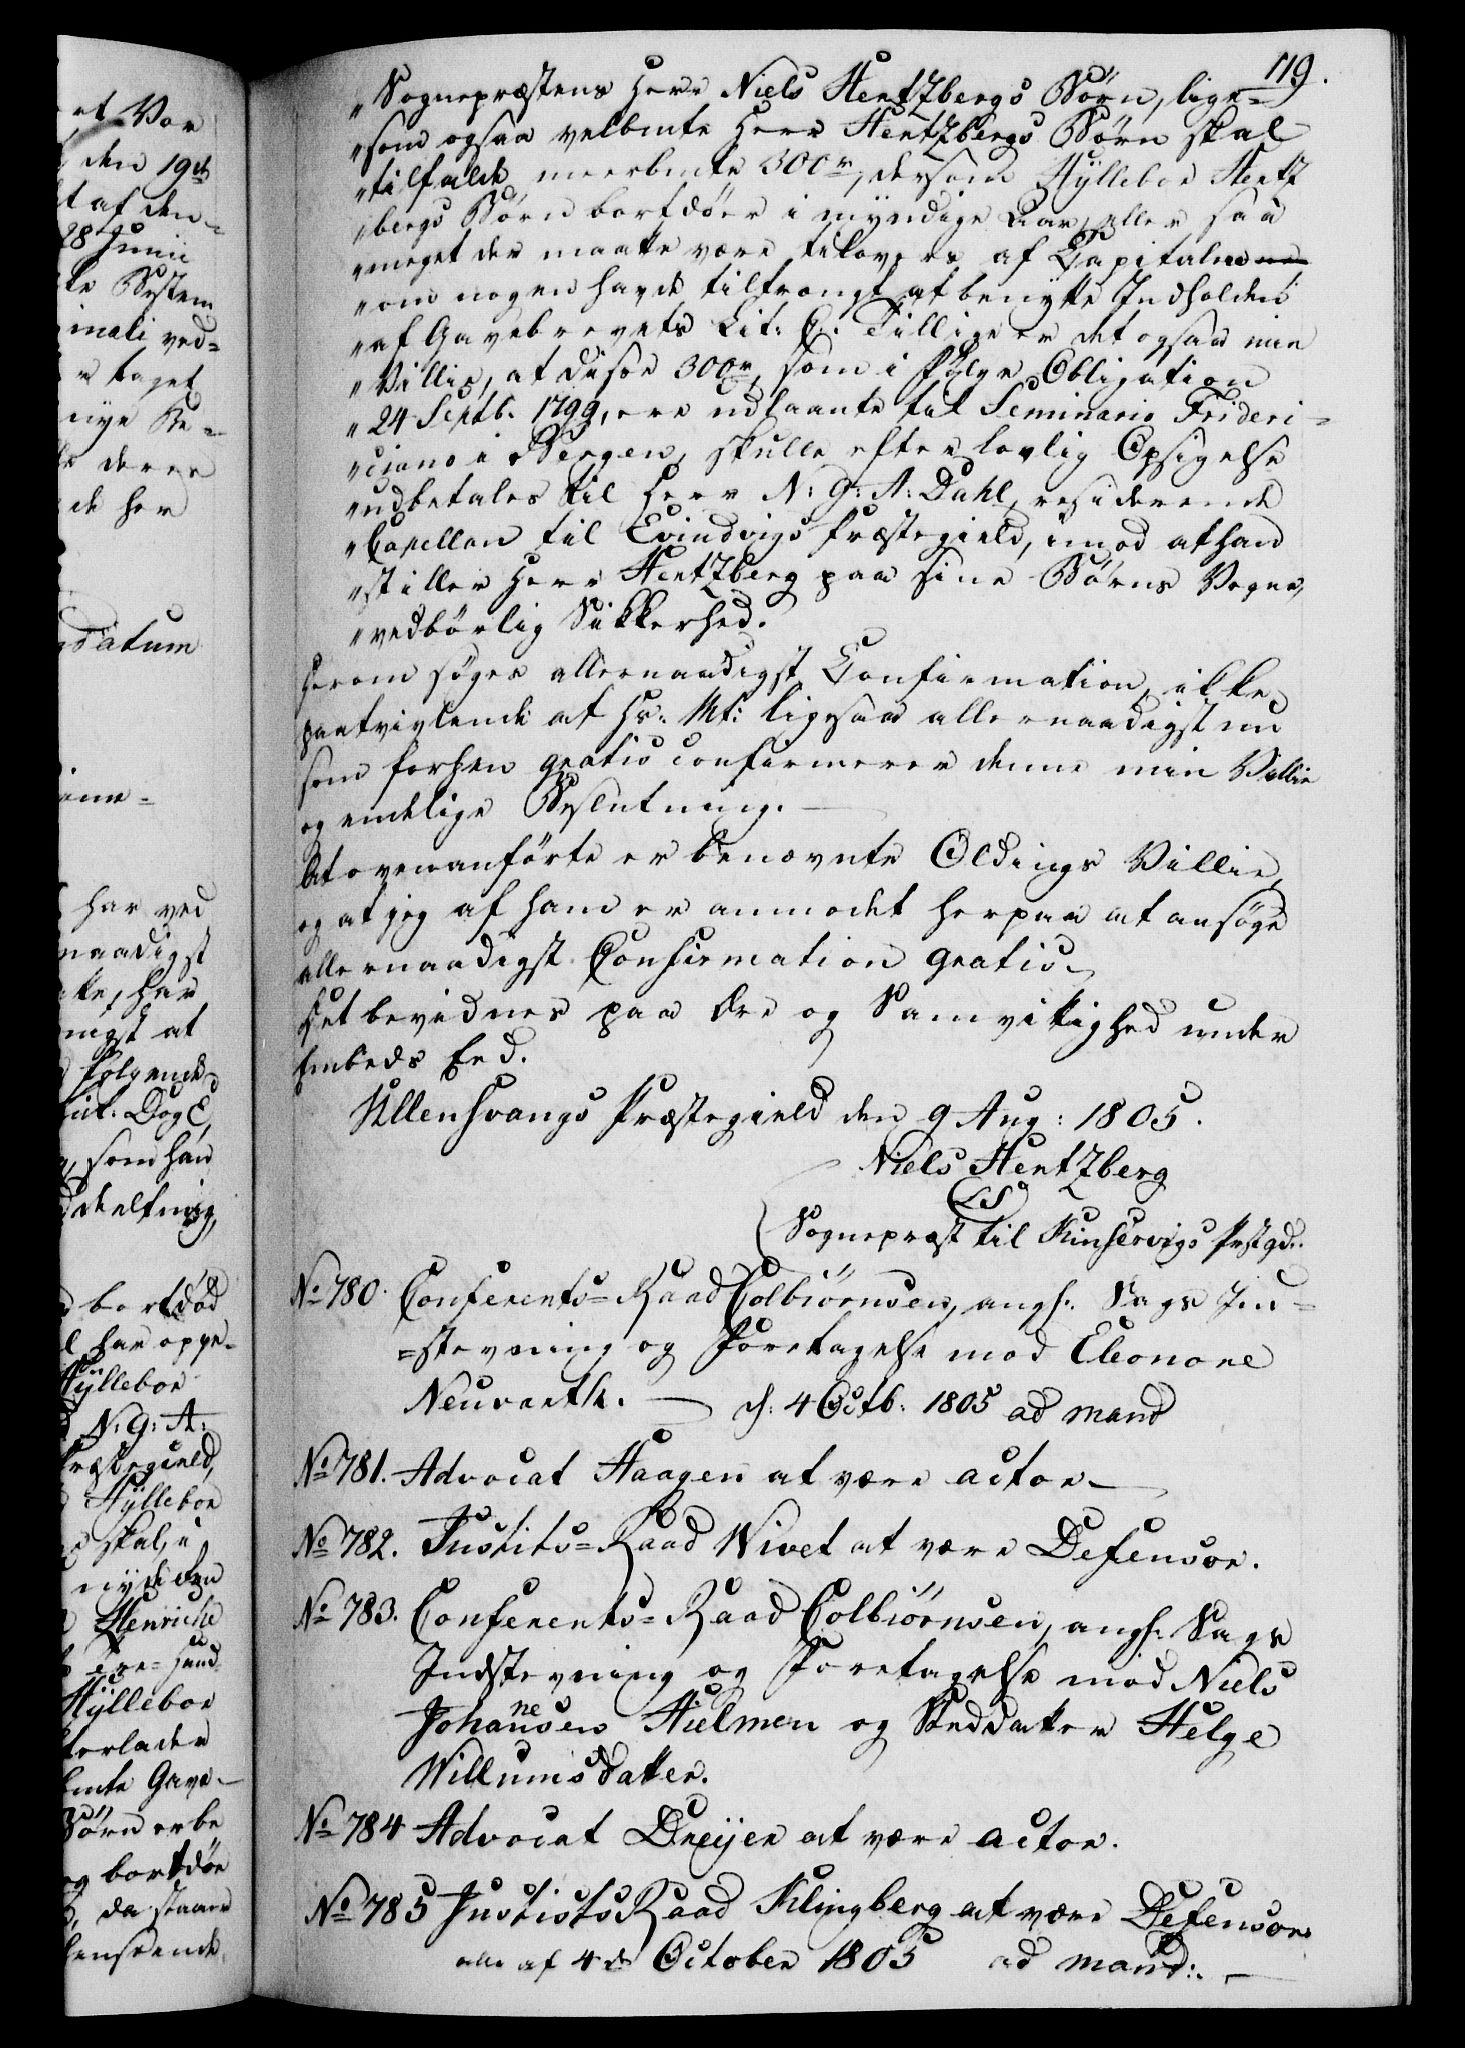 119.
„Sognepræstens Herr Niels Hertzbergs Börn, lige=
„som ogsaa velbmte Herr Hertzbergs Börn skal
„tilfalde meerbmte 300 rd, dersom Hÿllebor Hertz
„bergs Börn bortdöer i myndige Aar, eller saa
„meget der maatte være tilovers af Capitalen
„om nogen havde tiltrængt at benytte Indholden
„af Gavebrevets Lit: C. Tillige er det ogsaa min
„Villie, at disse 300 rd, som i fölge Obligation
„24 Septb. 1799, ere udlaante til Seminario Frideri=
„ciano i Bergen, skulle efter lovlig Opsigelse
„udbetales til Herr N: G: A: Dahl, residerende
„Capellan til Evindvigs Præstegield, imod at han
„stiller Herr Hertzberg paa sine Börns Vegne,
„vedbörlig Sikkerhed.
Herom söges allernaadigst Confirmation, ikke
paatvivlende at Hs. Mt: ligesaa allernaadigst nu
som forhen gratis confirmerer denne min Villie
og endelige Beslutning. —
At ovenanförte er benævnte Oldings Villie,
og at jeg af ham er anmodet herpaa at ansöge
allernaadigst Confirmation gratis,
Det bevidnes paa Ære og Samvitighed under
Embeds Eed.
Ullensvangs Præstegield den 9 Aug: 1805.
Niels Hertzberg
(LS)
Sognepræst til Kinservigs Pstgd:.
No 780. Conferents=Raad Colbiörnsen, angl: Sags In=
=stevning og Foretagelse mod Eleonore
Neuvarth. — d: 4 Octb. 1805 ad mand
No 781. Advocat Haagen at være actor —
No 782. Justits=Raad Wivet at være Defensor.
No 783. Conferents=Raad Colbiörnsen, angl: Sags
Indstevning og Foretagelse mod Niels
Johannesen Hielmen og Steddatter Helge
Willumsdatter.
No 784 Advocat Dreijer at være actor.
No 785 Justists Raad Klingberg at være Defensor
alle af 4de October 1805 ad mand:. —